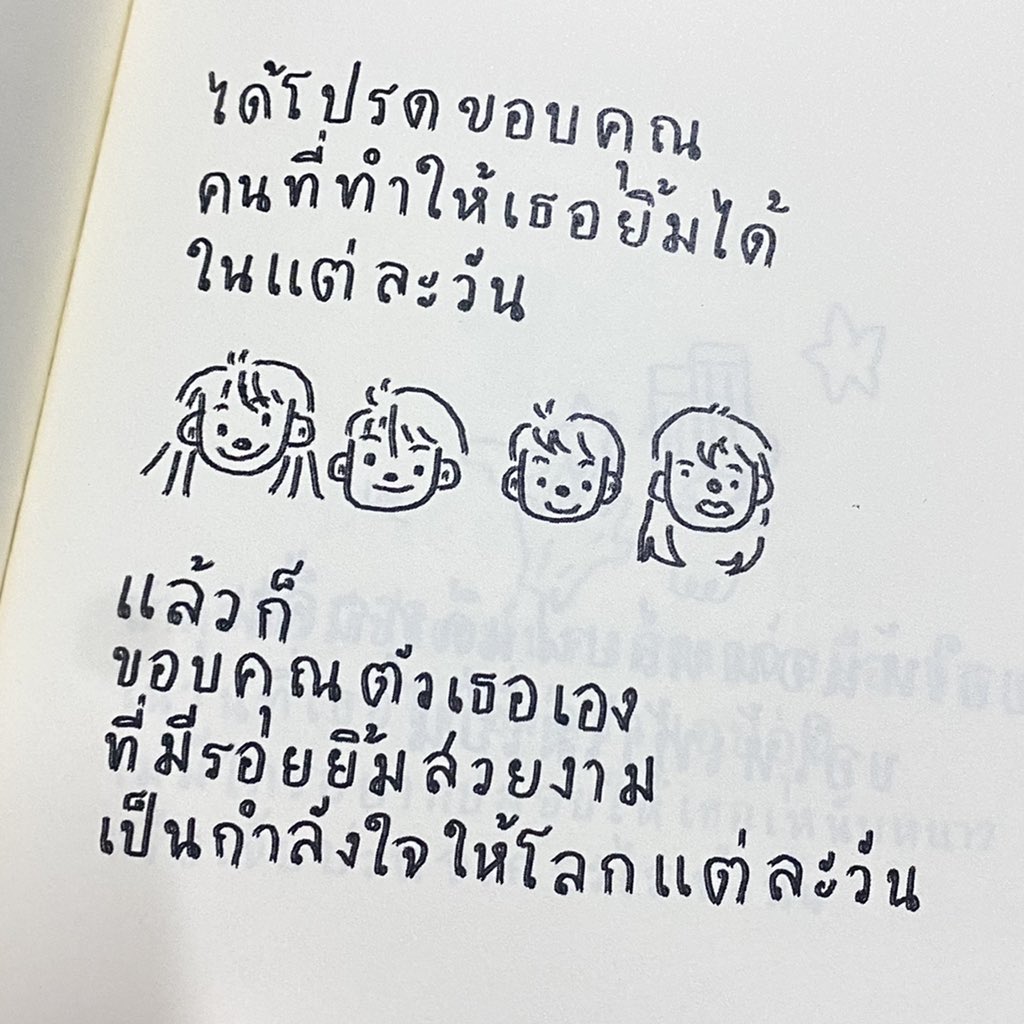 ได้โปรดขอบคุณ
คนที่ทำให้เธอยิ้มได้
ในแต่ละวัน
แล้วก็
ขอบคุณตัวเธอเอง
ที่มีรอยยิ้มสวยงาม
เป็นกำลังใจให้โลกแต่ละวัน